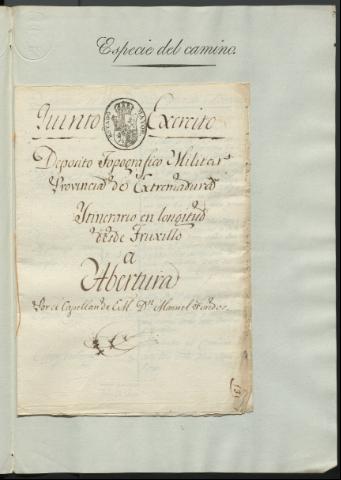 Especie del camino.
Quinto Exercito
Deposito Topografico Militar
Provincia de Extremadura
Itinerario en longitud
desde Truxillo
a
Abertura
Por el Capellan de E.M. Dn. Manuel